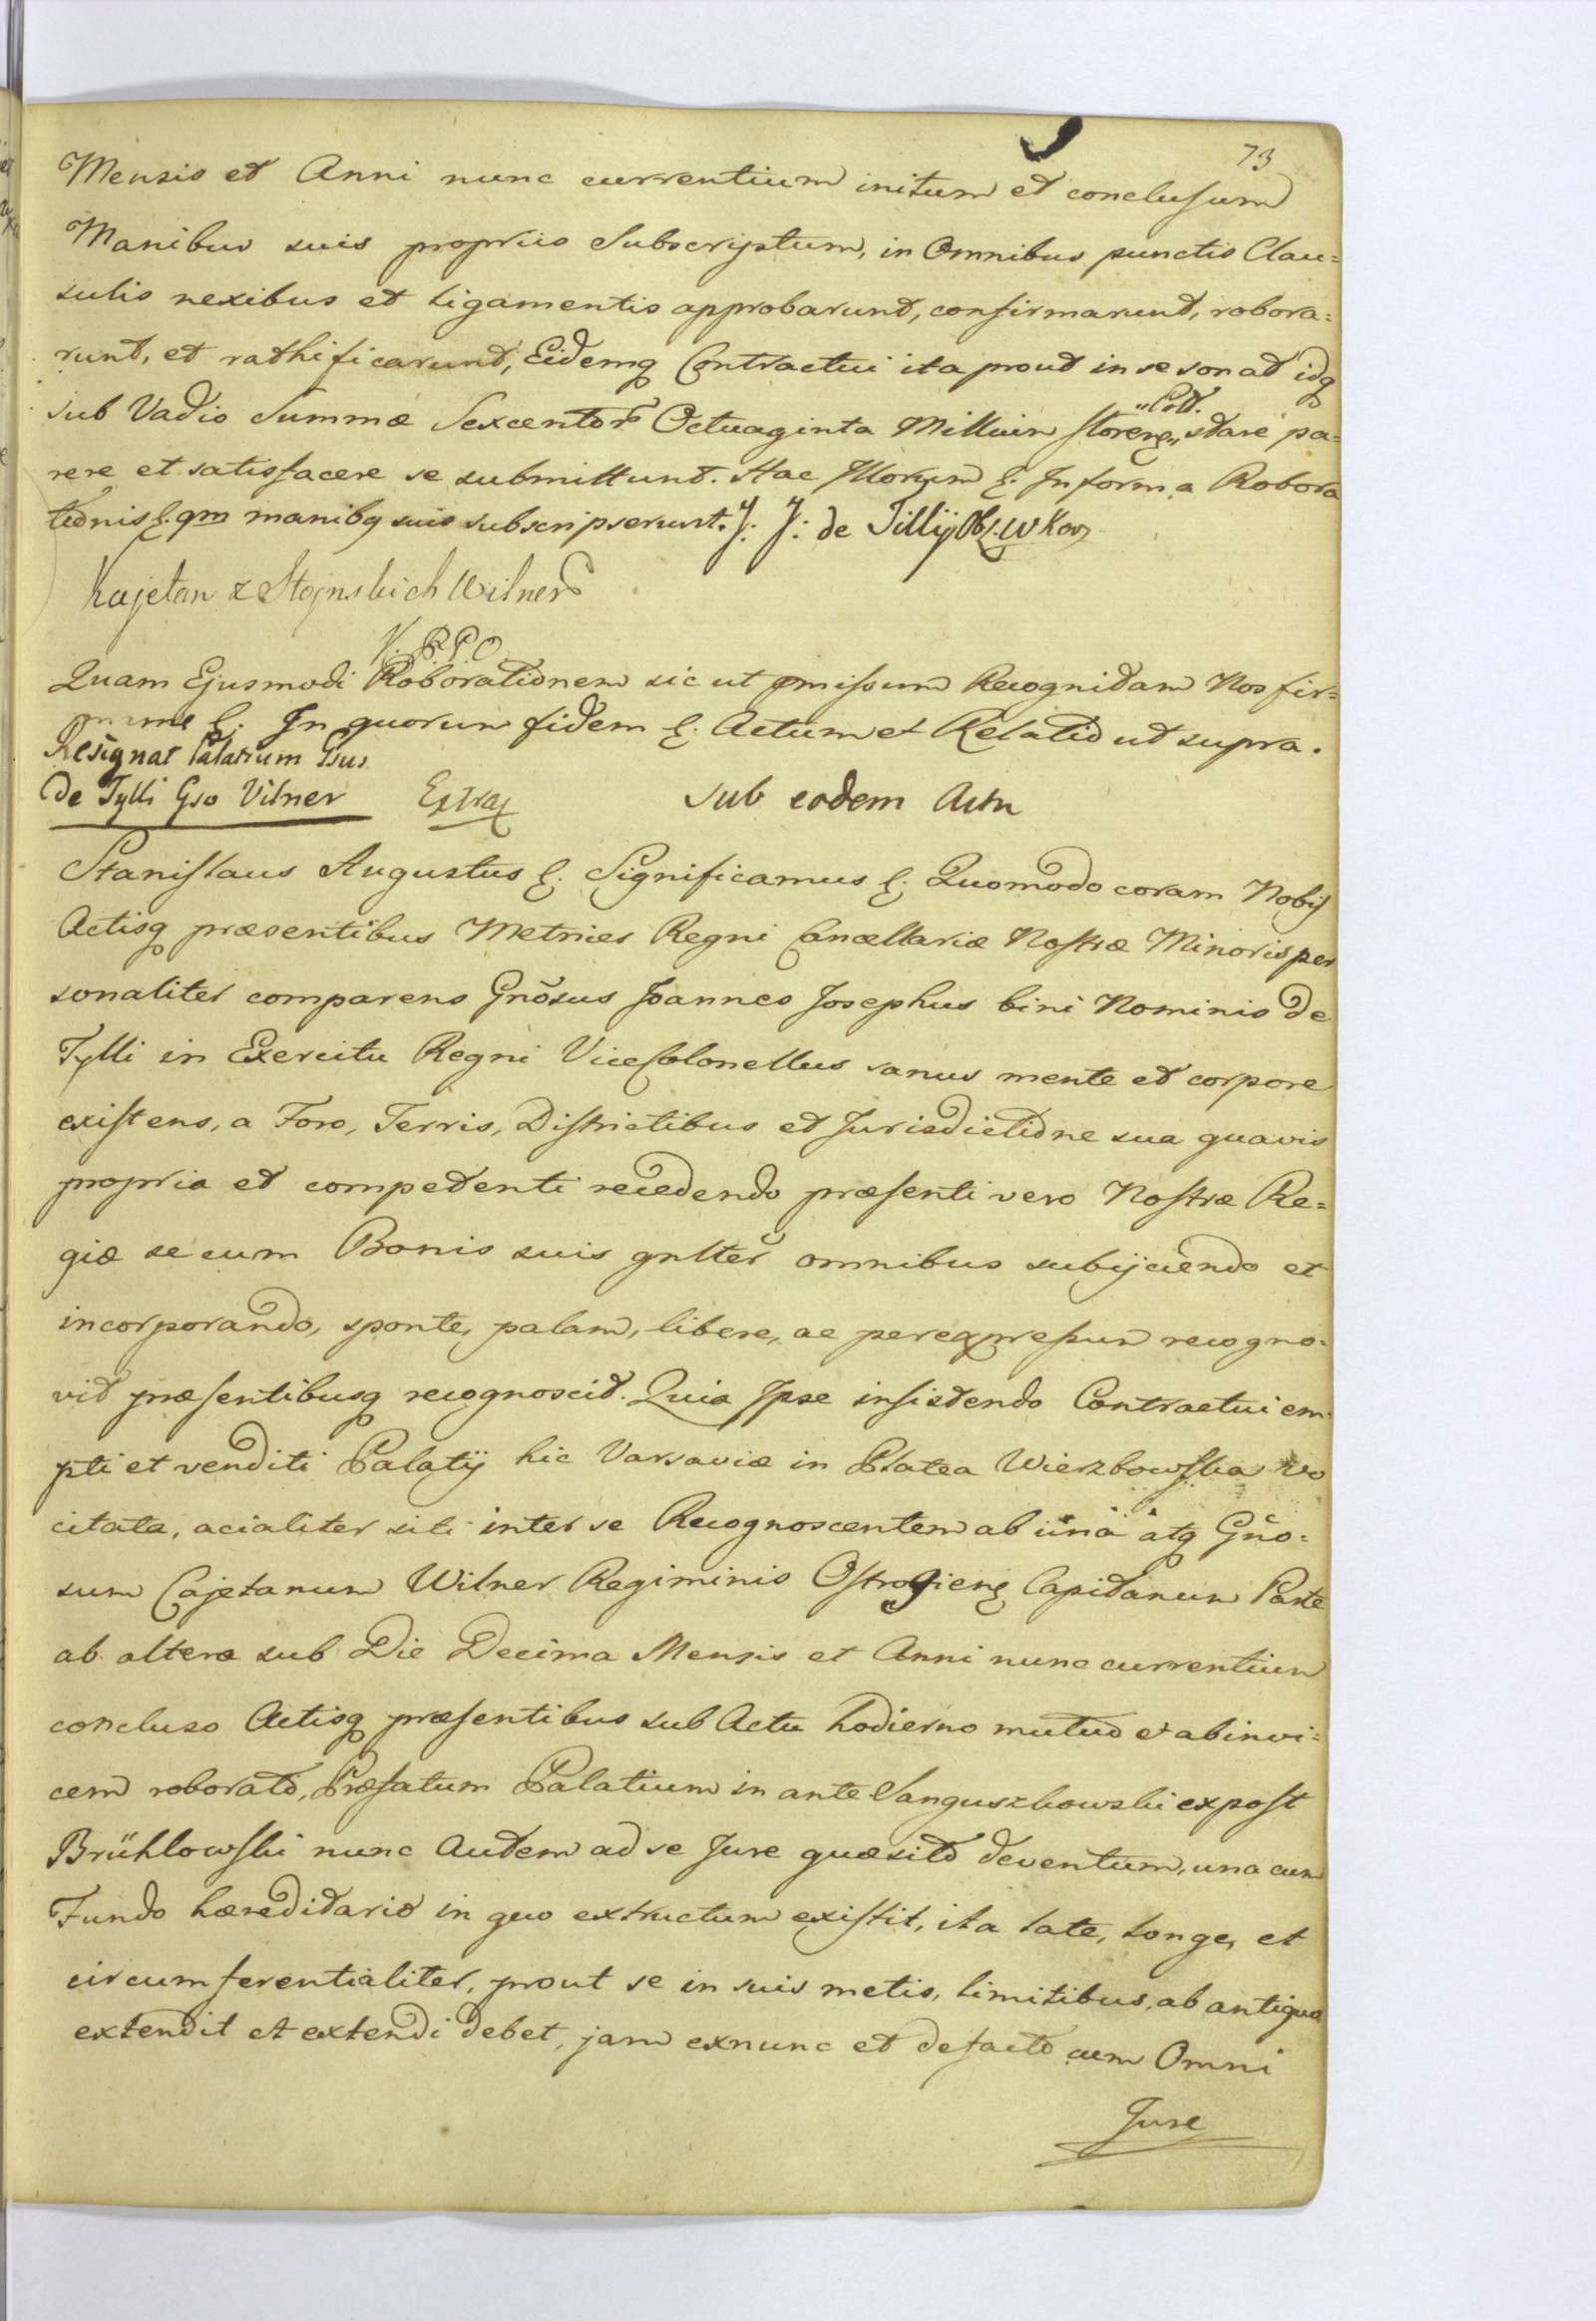 73
Mensis et Anni nunc currentium initum et conclusum
Manibus suis propriis Subscriptum, in Omnibus punctis Clau=
sulis nexibus et ligamentis approbarunt, confirmarunt, robora=
runt, et rathificarunt, Eidemq Contractui ita prout in se sonat idq
"Poll.
sub Vadio Summæ Sexcentor Octuaginta Millium floreng" stare pa=
rere et satisfacere se submittunt. Hac Morum &. In forma Robora
tionis &. qm manibq suis subscripserunt. J: J: de Tillÿ
Kajetan z Stojnskich Wilner
V. R.P.O
Quam Ejusmodi Roborationem sic ut pmissum Recognitam Nos fir=
&. In quorum fidem &. Actum et Relatio ut supra.
Resignat Palatium Gsus
De Tylli Gso Vilner Extrax Sub eodem Actu
Stanislaus Augustus &. Significamus &. Quomodo coram Nobis
Actisq præsentibus Metrices Regni Cancellariæ Nostræ Minoris per
sonaliter comparens Gnõsus Joannes Josephus bini Nominis de
Tylli in Exercitu Regni ViceColonellus sanus mente et corpore
existens, a Foro, Terris, Districtibus et Jurisdictione sua quavis
propria et competenti recedendo præsenti vero Nostræ Re=
giæ se cum Bonis suis gnlter omnibus subijciendo et
incorporando, sponte, palam, libere, ac perexpressum recogno=
vit præsentibusq recognoscit. Quia Ipse insistendo Contractui em=
pti et venditi Palatÿ hic Varsaviæ in Platea Wierzbowska vo
citata, acialiter siti inter se Recognoscentem ab una atq Gño=
sum Cajetanum Wilner Regiminis Ostrogieng Capitaneum Parte
ab altera sub Die Decima Mensis et Anni nunc currentium
concluso Actisq præsentibus sub Actu hodierno mutuo et abinvi=
cem roborato, Præfatum Palatium in ante Sanguszkowski expost
Brühlowski nunc Autem ad se Jure quæsito deventum, una cum
Fundo hæreditario in quo extructum existit, ita late, longe, et
circumferentialiter, prout se in suis metis, limitibus, ab antiquo
extendit et extendi debet, jam exnunc et defacto cum Omni
Jure